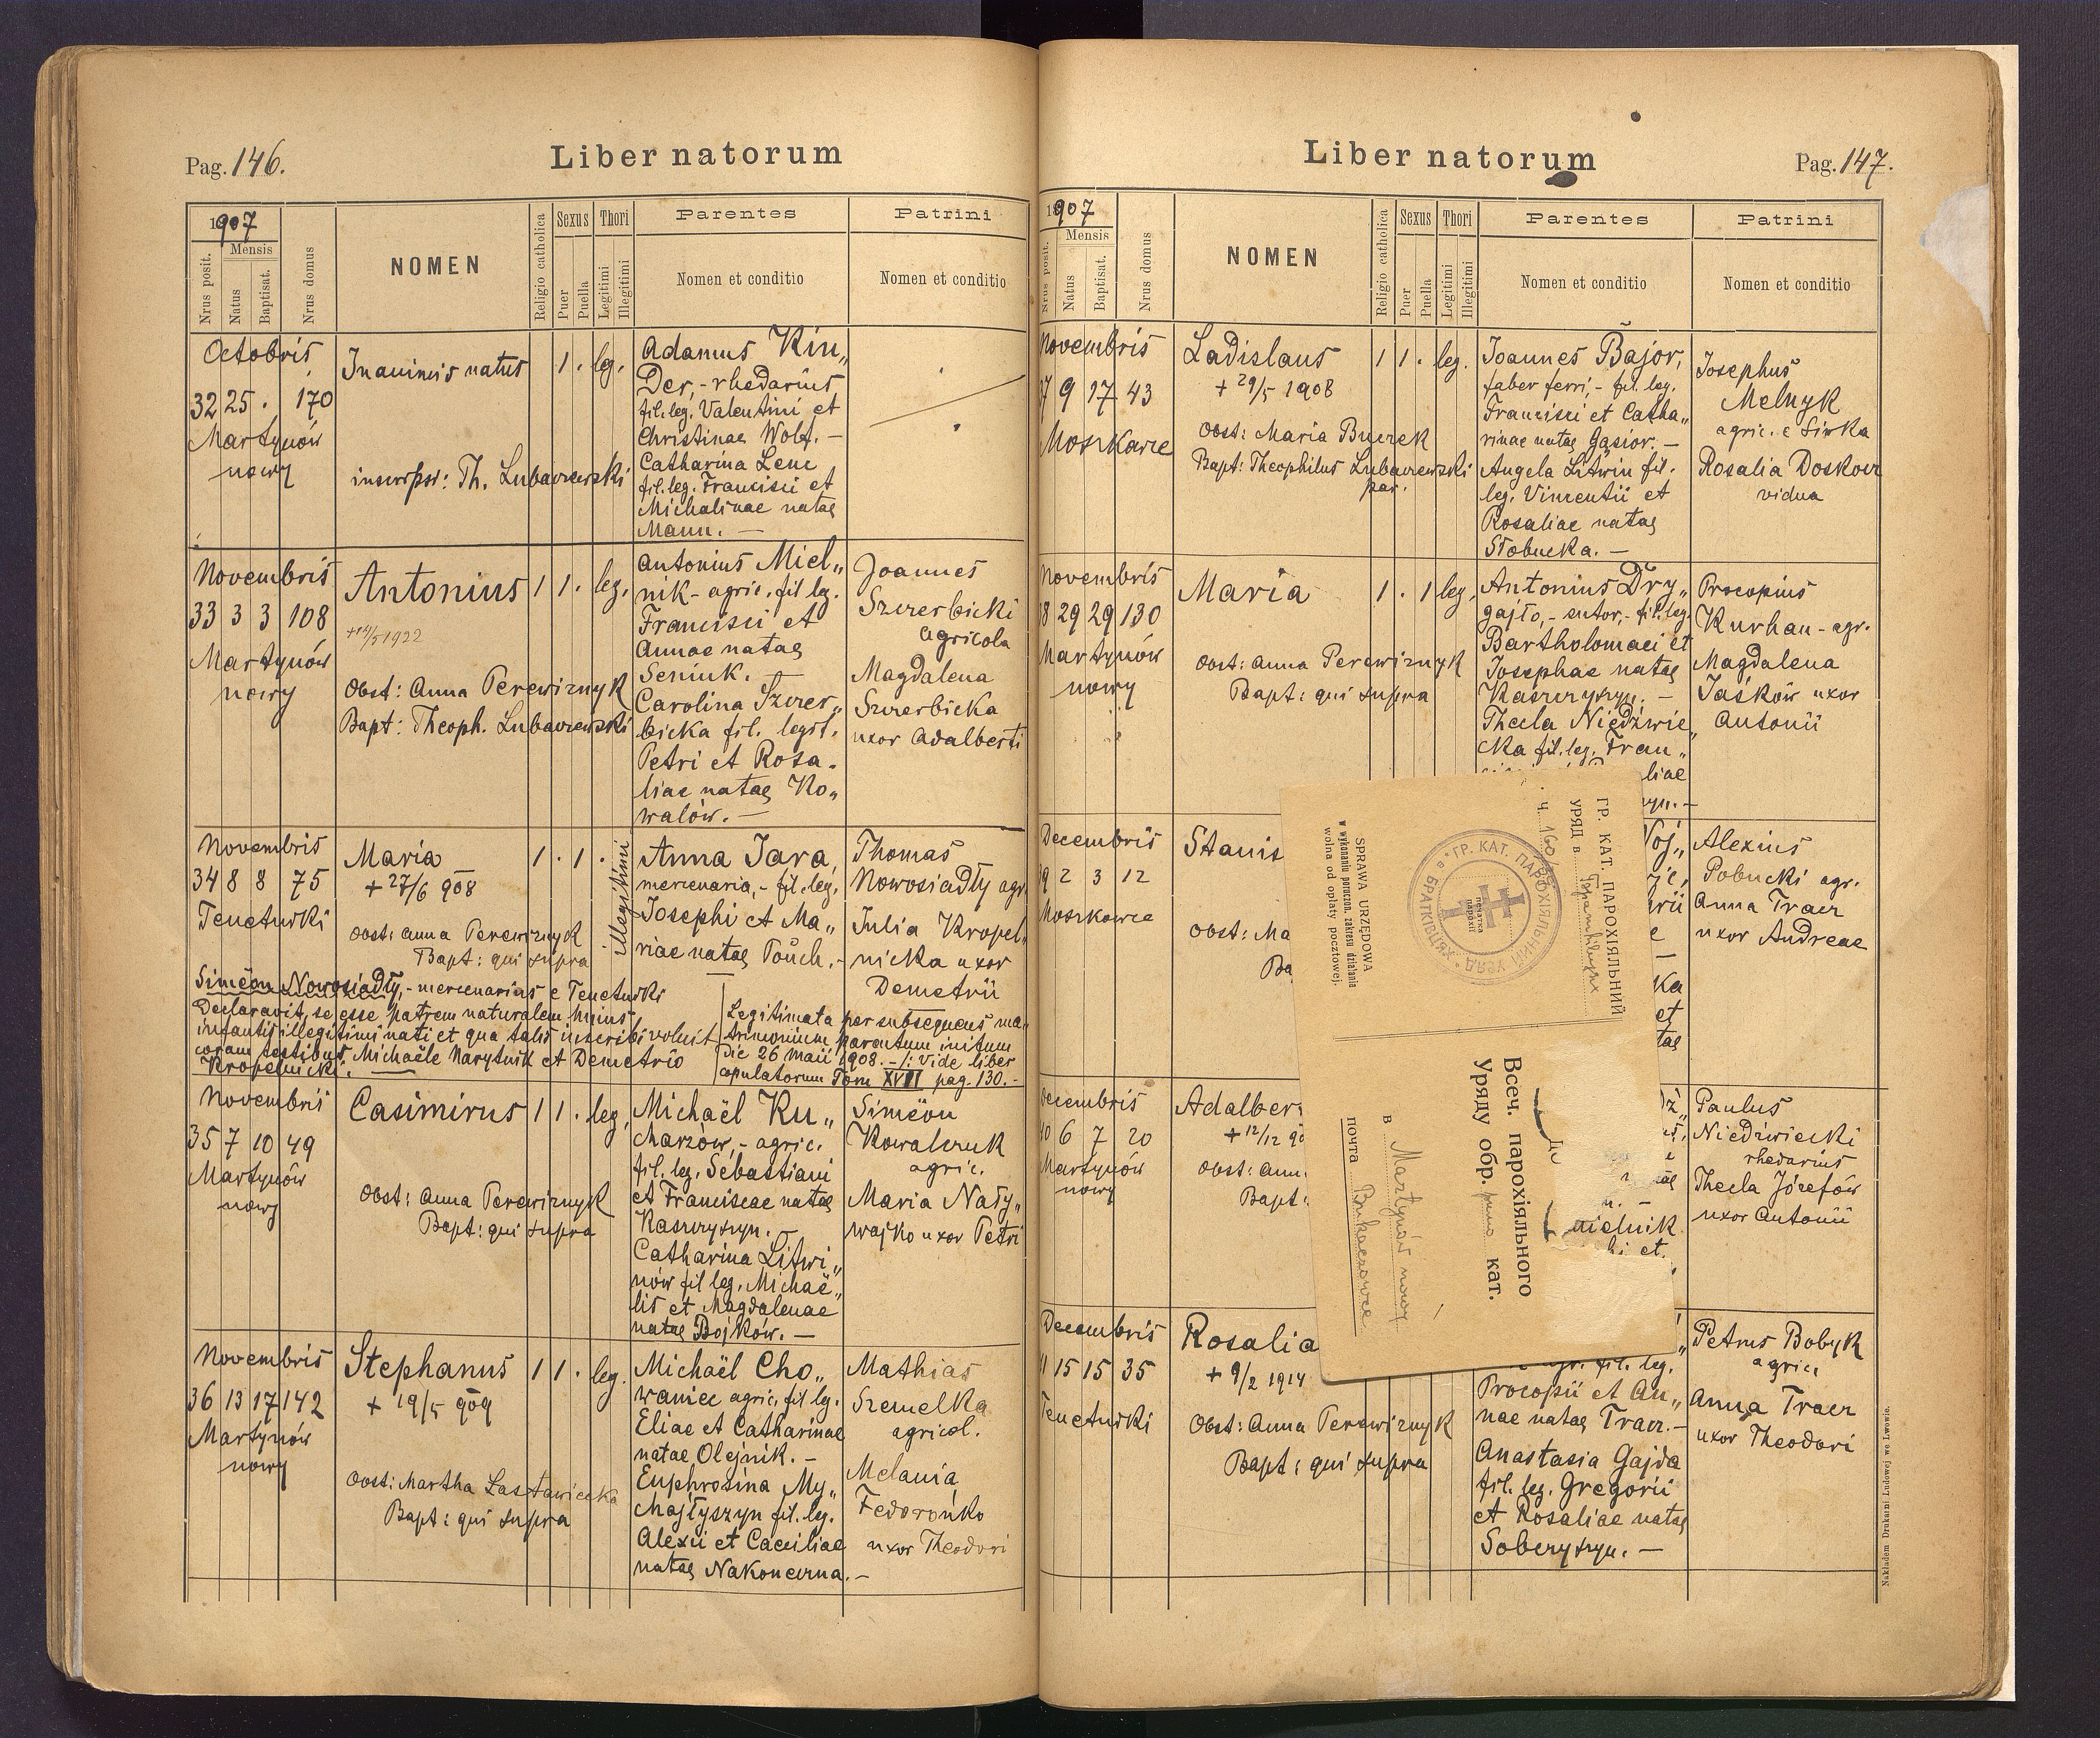 Pag. 146.
Liber natorum
1907
Mensis
Nrus posit.
Natus
Baptisat.
Nrus domus
NOMEN
Religio catholica
Sexus
Puer
Puella
Thori
Legitimi
Illegitimi
Parentes
Nomen et conditio
Patrini
Nomen et conditio
Octobris
32 25 . 170
Martynów
nowy
Inanimis natus
Th. Lubaczewski
1 . leg.
Adamus Kin„
der,- rhedarius
fil. leg. Valentini et
Christinae Wolf. —
Catharina Lenc
fil. leg. Francisci et
Michalinae natae
Mann. —
Novembris
33 3 3 108
Martynów
nowy
Antonius
Obst: Anna Perewiznyk
Bapt: Theoph. Lubaczewski
1 1 . leg.
Antonius Miel„
nik - agric. fil leg.
Francisci et
Annae natae
Seniuk. —
Carolina Szczer„
bicka fil. legit.
Petri et Rosa-
liae natae Ko„
walów. —
Joannes
Szczerbicki
agricola
Magdalena
Szczerbicka
uxor Adalberti
Novembris
34 8 8 75
Tenetniki
Maria
+ 27/6 908
Obst: Anna Perewiznyk
Bapt: qui supra
1 . 1 .
Illegitimi
Anna Jara,
mercenaria,- fil. leg.
Josephi et Ma„
riae natae
Thomas
Nowosiadły agr.
Julia Kropel„
nicka uxor
Demetrii
Simeon Nowosiadły,- mercenarius e Tenetniki
declaravit, se esse patrem naturalem huius
infantis illegitimi nati et qua talis inscribi voluit
coram testibus: Michaële Narytnik et Demetrio
Kropelnicki. —
Legitimata per subsequens ma„
trimonium parentum initum
die 26 Maii 1908. - /: Vide liber
copulatorum Tom XVIII pag. 130. -
Novembris
35 7 10 49
Martynów
nowy
Casimirus
Obst: Anna Perewiznyk
Bapt: qui supra
1 1 . leg.
Michaël Ku„
charzów,- agric.
fil. leg. Sebastiani
et Franciscae natae
Kaszczyszyn. —
Catharina Litwi„
nów fil leg. Michaë„
lis et Magdalenae
natae Bojków. —
Simeon
Kowalczuk
agric.
Maria Nały„
wajko uxor Petri
Novembris
36 13 17 142
Martynów
nowy
Stephanus
+ 19/5 909
Obst: Martha Lastawiecka
Bapt: qui supra
1 1 . leg.
Michaël Cho„
waniec agric. fil leg.
Eliae et Catharinae
natae Olejnik. —
Euphrosina My„
chajłyszyn fil. leg.
Alexii et Caeciliae
natae Nakoneczna. —
Mathias
Szemelka
agricol.
Melania
Fedoronko
uxor Theodori
Liber natorum
Pag. 147.
1907
Mensis
Nrus posit.
Natus
Baptisat.
Nrus domus
NOMEN
Religio catholica
Sexus
Puer
Puella
Thori
Legitimi
Illegitimi
Parentes
Nomen et conditio
Patrini
Nomen et conditio
Novembris
7 9 17 43
Moszkowce
Ladislaus
+ 29/5 1908
Obst: Maria Burek
Bapt: Theophilus Lubaczewski
par.
1 1 . leg.
Joannes Bajor,
faber ferri,- fil. leg.
Francisci et Catha„
rinae natae Gąsior. —
Angela Litwin fil.
leg. Vincentii et
Rosaliae natae
Słobucka. —
Josephus
Melnyk
agric. e Siwka
Rosalia Doskocz
vidua
Novembris
8 29 29 130
Martynów
nowy
Maria
Obst: Anna Perewiznyk
Bapt: qui supra
1 . 1 leg.
Antonius Dry„
gajło,- sutor,- fil. leg.
Bartholomaei et
Josephae natae
Kaszczyszyn. —
Thecla Niedźwie„
cka fil. leg. Fran„
liae
Procopius
Kurhan - agr.
Magdalena
Jaśków uxor
Antonii
Decembris
9 2 3 12
Moszkowce
Stanis
Obst: Ma
Ba
Alexius
Pobucki agr.
Anna Tracz
uxor Andreae
ka
et
Decembris
0 6 7 20
Martynów
nowy
Adalber
+ 12/12
Obst: Ann
Bapt:
Paulus
Niedźwiecki
rhedarius
Thecla Józefów
uxor Antonii
nielnik
et.
Decembris
1 15 15 35
Tenetniki
Rosalia
+ 9/2 1914
Obst: Anna Perewiznyk
Bapt: qui supra
fil. leg.
Procopii et An„
nae natae Tracz. —
Anastasia Gajda
fil. leg. Gregorii
et Rosaliae natae
Soberyszyn. —
Petrus Bobyk
agric.
Anna Tracz
uxor Theodori
Nakładem Drukarni Ludowej we Lwowie.
ГР. КАТ. ПАРОХІЯЛЬНИЙ
УРЯД в
ч. 160
ГР. КАТ. ПАРОХІЯЛЬНИЙ УРЯД в БРАТКІВЦЯХ
печатка
парохії
SPRAWA URZĘDOWA
w wykonaniu poruczon. zakresu działania
wolna od opłaty pocztowej.
Всеч. парохіяльного
Уряду обр. кат.
в Martynów nowy
почта Bukaczowce